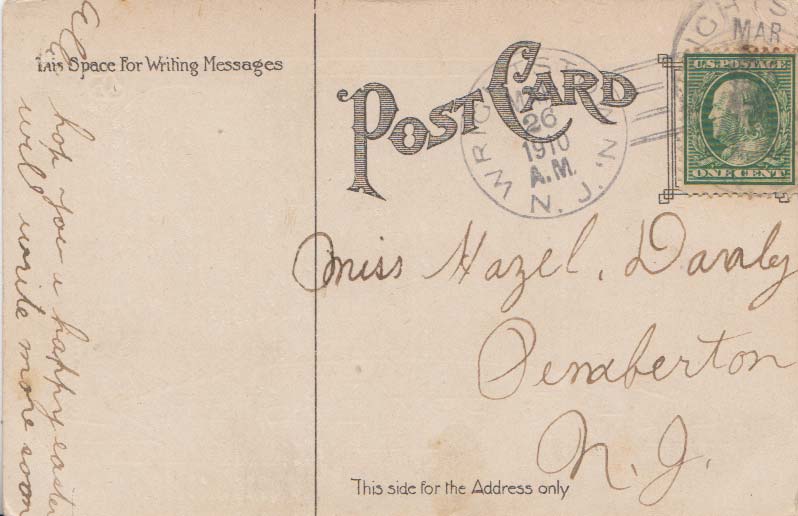 This Space For Writing Messages
hop you a happy easter
will write more soon
E.E.
POST CARD
WRIGHTST N, N.J.
MAR
26
1910
A.M.
MAR
U.S. POSTAGE
ONE CENT
Miss Hazel. Danaly
Pemberton
N. J.
This side for the Address only